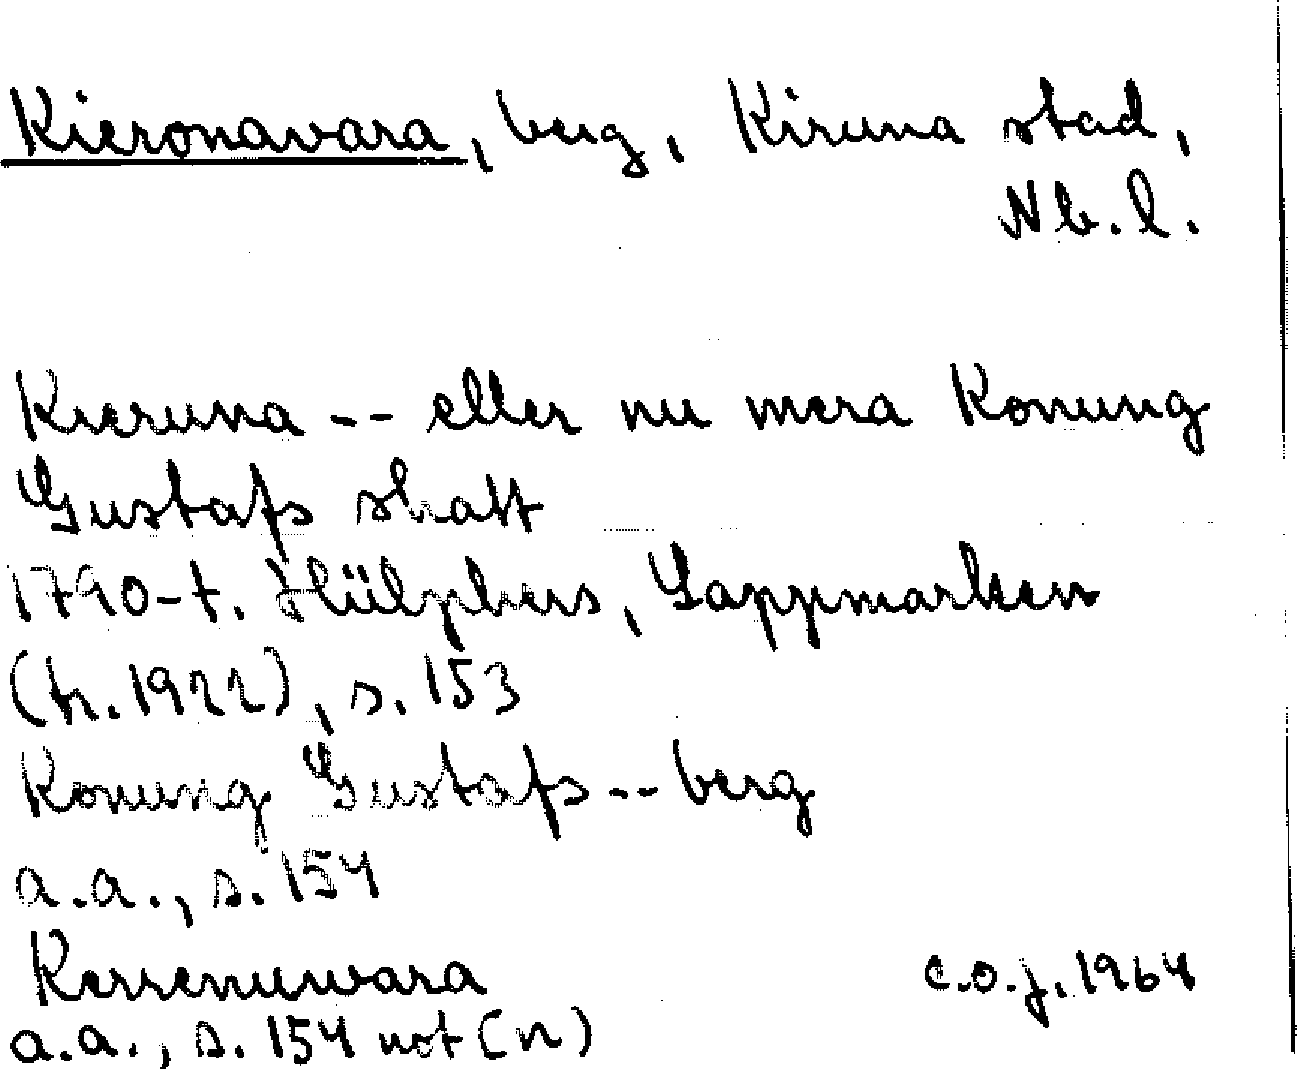 Kieronavara, berg, Kiruna stad,
Nb. l.
Kieruna -- eller nu mera Konung
Gustafs skatt
1790-t. Hülphers, Lappmarken
(tr. 1922), s. 153
Konung Gustafs -- berg
a.a., s. 154
Kerrenuwara
a.a., s. 154 not (n)
C.O.J. 1964